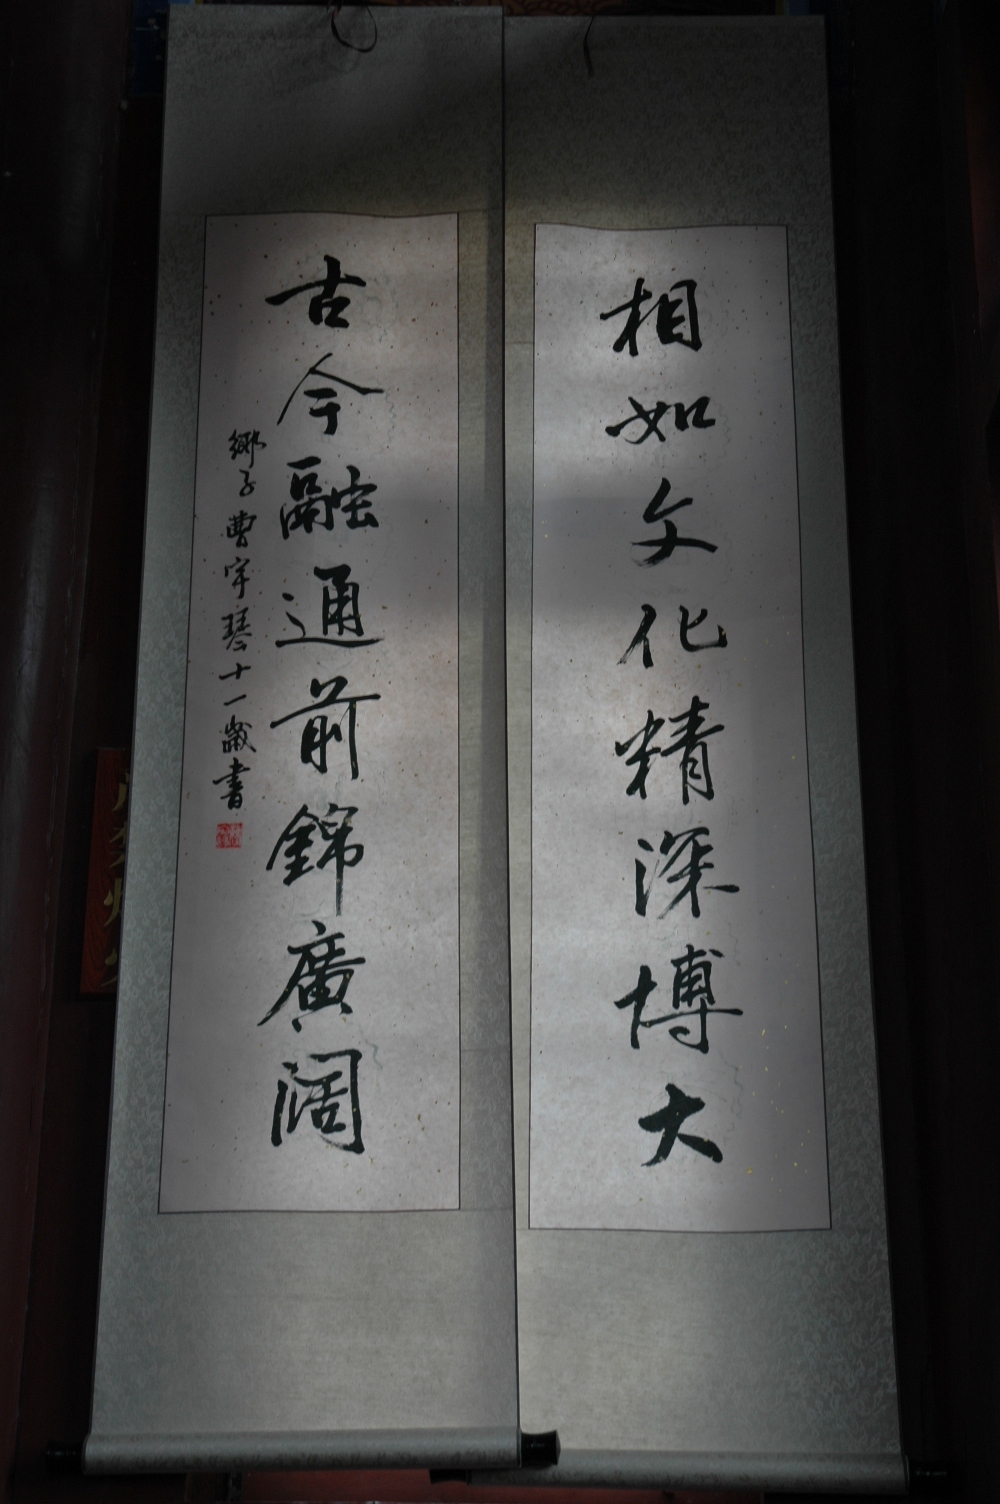 相如文化精深博大
古今融通前錦廣阔
鄉子曹宇琴十一歲書